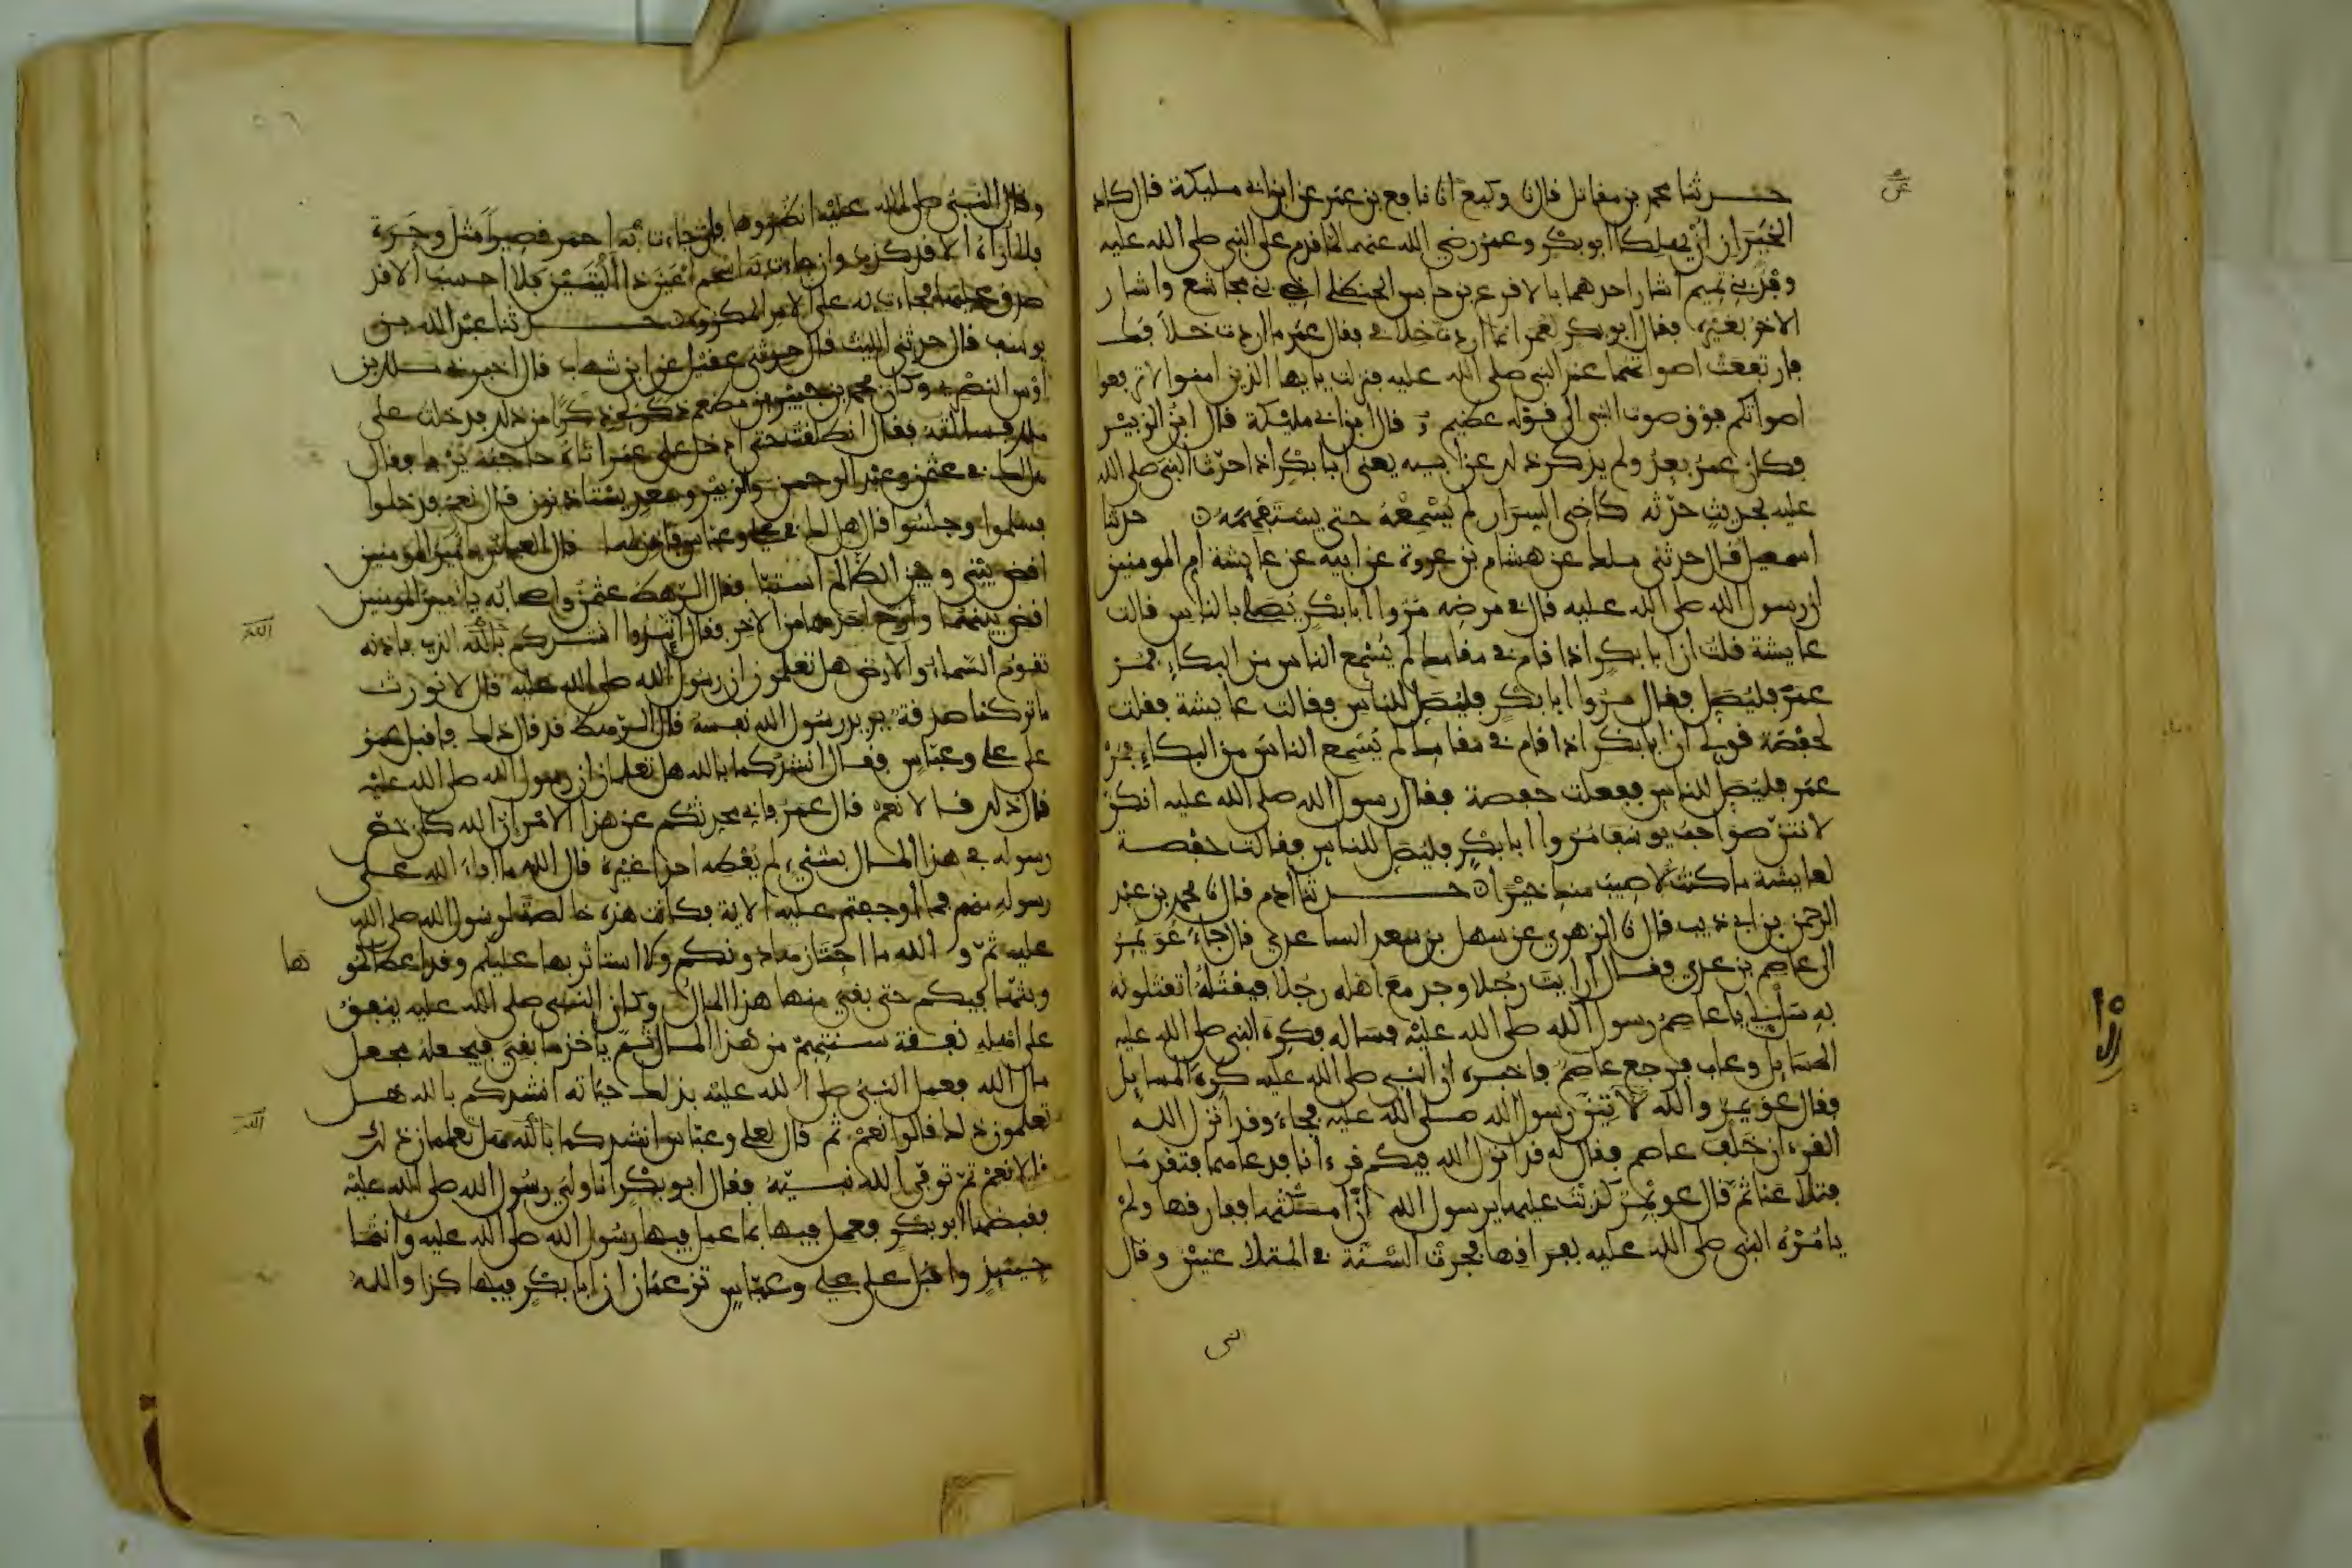 حدثنا محمد بن مقاتل قال نا وكيع انا نافع بن عمر عن ابن ابي مليكة قال كاد
الخيران ان يهلكا ابو بكر وعمر رضي الله عنهما لما قدم على النبي صلى الله عليه
وفد بني تميم اشار احدهما بالاقرع بن حابس الحنظلي اخي بني مجاشع واشار
الاخر بغيره فقال ابو بكر لعمر انما اردت خلافي فقال عمر ما اردت خلافك
فارتفعت اصواتهما عند النبي صلى الله عليه فنزلت يايها الذين امنوا لا ترفعوا
اصواتكم فوق صوت النبي الى قوله عظيم قال ابن ابي مليكة قال ابن الزبير
فكان عمر بعد ولم يذكر ذلك عن ابيه يعني ابا بكر اذا حدث النبي صلى الله
عليه بحديث حدثه كاخي السرار لم يسمعه حتى يستفهمه حدثنا
اسمعيل قال حدثني ملك عن هشام بن عروة عن ابيه عن عايشة ام المومنين
ان رسول الله صلى الله عليه قال في مرضه مروا ابا بكر يصلي بالناس قالت
عايشة قلت ان ابا بكر اذا قام في مقامك لم يسمع الناس من البكاء فمر
عمر فليصل فقال مروا ابا بكر فليصل للناس فقالت عايشة فقلت
لحفصة قولي ان ابا بكر اذا قام في مقامك لم يسمع الناس من البكاء فمر
عمر فليصل للناس ففعلت حفصة فقال رسول الله صلى الله عليه انكن
لانتن صواحب يوسف مروا ابا بكر فليصل للناس فقالت حفصة
لعايشة ما كنت لاصيب منك خيرا حدثنا ادم قال نا محمد بن عبد
الرحمن بن ابي ذيب قال نا الزهري عن سهل بن سعد الساعدي قال جاء عويمر
الى عاصم بن عدي فقال ارايت رجلا وجد مع اهله رجلا فيقتله اتقتلونه
به سل لي يا عاصم رسول الله صلى الله عليه فساله فكره النبي صلى الله عليه
المسايل وعاب فرجع عاصم فاخبره ان النبي صلى الله عليه كره المسايل
فقال عويمر والله لاتين رسول الله صلى الله عليه فجاء وقد انزل الله
القرءان خلف عاصم فقال له قد انزل الله فيكم قرءانا فدعاهما فتقدما
فتلاعنا ثم قال عويمر كذبت عليها يرسول الله ان امسكتها ففارقها ولم
يامره النبي صلى الله عليه بفراقها فجرت السنة في المتلاعنين وقال
النبي
وقال النبي صلى الله عليه انظروها فان جاءت به احمر قصيرا مثل وحرة
فلا اراه الا قد كذب وان جاءت به اسحم اعين ذا اليتين فلا احسب الا قد
صدق عليها فجاءت به على الامر المكروه حدثنا عبد الله بن
يوسف قال حدثني الليث قال حدثني عقيل عن ابن شهاب قال اخبرني ملك بن
اوس النصري وكان محمد بن جبير بن مطعم ذكر لي ذكرا من ذلك فدخلت على
ملك فسالته فقال انطلقت حتى ادخل على عمر اتاه حاجبه يرفا فقال
هل لك في عثمن وعبد الرحمن والزبير وسعد يستاذنون قال نعم فدخلوا
فسلموا وجلسوا قال هل لك في علي وعباس فاذن لهما قال العباس يا امير المومنين
اقض بيني وبين الظالم استبا فقال الرهط عثمن واصحابه يا امير المومنين
اقض بينهما وارح احدهما من الاخر فقال اتئدوا انشدكم بالله الذي باذنه
تقوم السماء والارض هل تعلمون ان رسول الله صلى الله عليه قال لا نورث
ما تركنا صدقة يريد رسول الله نفسه قال الرهط قد قال ذلك فاقبل عمر
على علي وعباس فقال انشدكما بالله هل تعلمان ان رسول الله صلى الله عليه
قال ذلك قالا نعم قال عمر فاني محدثكم عن هذا الامر ان الله كان خص
رسوله في هذا المال بشيء لم يعطه احدا غيره قال الله ما افاء الله على
رسوله منهم فما اوجفتم عليه الاية فكانت هذه خالصة لرسول الله صلى الله
عليه ثم والله ما احتازها دونكم ولا استاثر بها عليكم وقد اعطاكمو ها
وبثها فيكم حتى بقي منها هذا المال وكان النبي صلى الله عليه ينفق
على اهله نفقة سنتهم من هذا المال ثم ياخذ ما بقي فيجعله مجعل
مال الله فعمل النبي صلى الله عليه بذلك حياته انشدكم بالله هل
تعلمون ذلك قالوا نعم ثم قال لعلي وعباس انشدكما بالله هل تعلمان ذلك
قالا نعم ثم توفى الله نبيه فقال ابو بكر انا ولي رسول الله صلى الله عليه
فقبضها ابو بكر فعمل فيها بما عمل فيها رسول الله صلى الله عليه وانتما
حينئذ واقبل على علي وعباس تزعمان ان ابا بكر فيها كذا والله